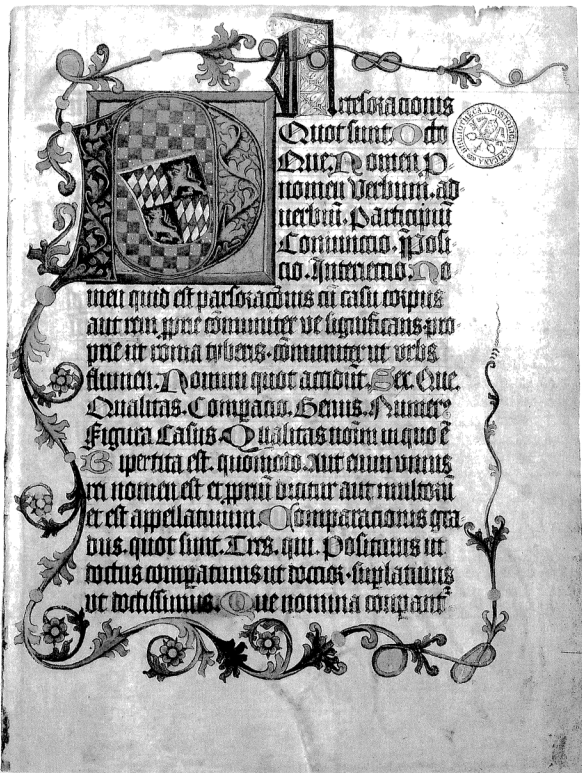 Partesoracionis
Quot sunt. Octo
Que. Nomen P-
nomen Verbum. ad
uerbiū. Participiū
Coniunctio. Pposi-
cio. Interiectio. No
men quid est parsoracōnis cū casu corpus
aut rem pprie cōmuniter ve significans pro
prie ut roma tyberis. cōmuniter ut vrbs
flumen. Nomini quot accidūt. Sex. Que.
Qualitas. Compacio. Genus. Numerꝰ
Figura Casus. Qualitas noīm in quo ē
Bipertita est. quomodo. Aut enim vnius
rei nomen est et ppriū dicitur aut multorū
et est appellatiuum. Comparacionis gra-
dus. quot sunt. Tres. qui. Positiuus ut
doctus compatiuus ut doctior. suplatiuus
vt doctissimus. Que nomina compant̄
BIBLIOTHECA APOSTOLICA VATICANA